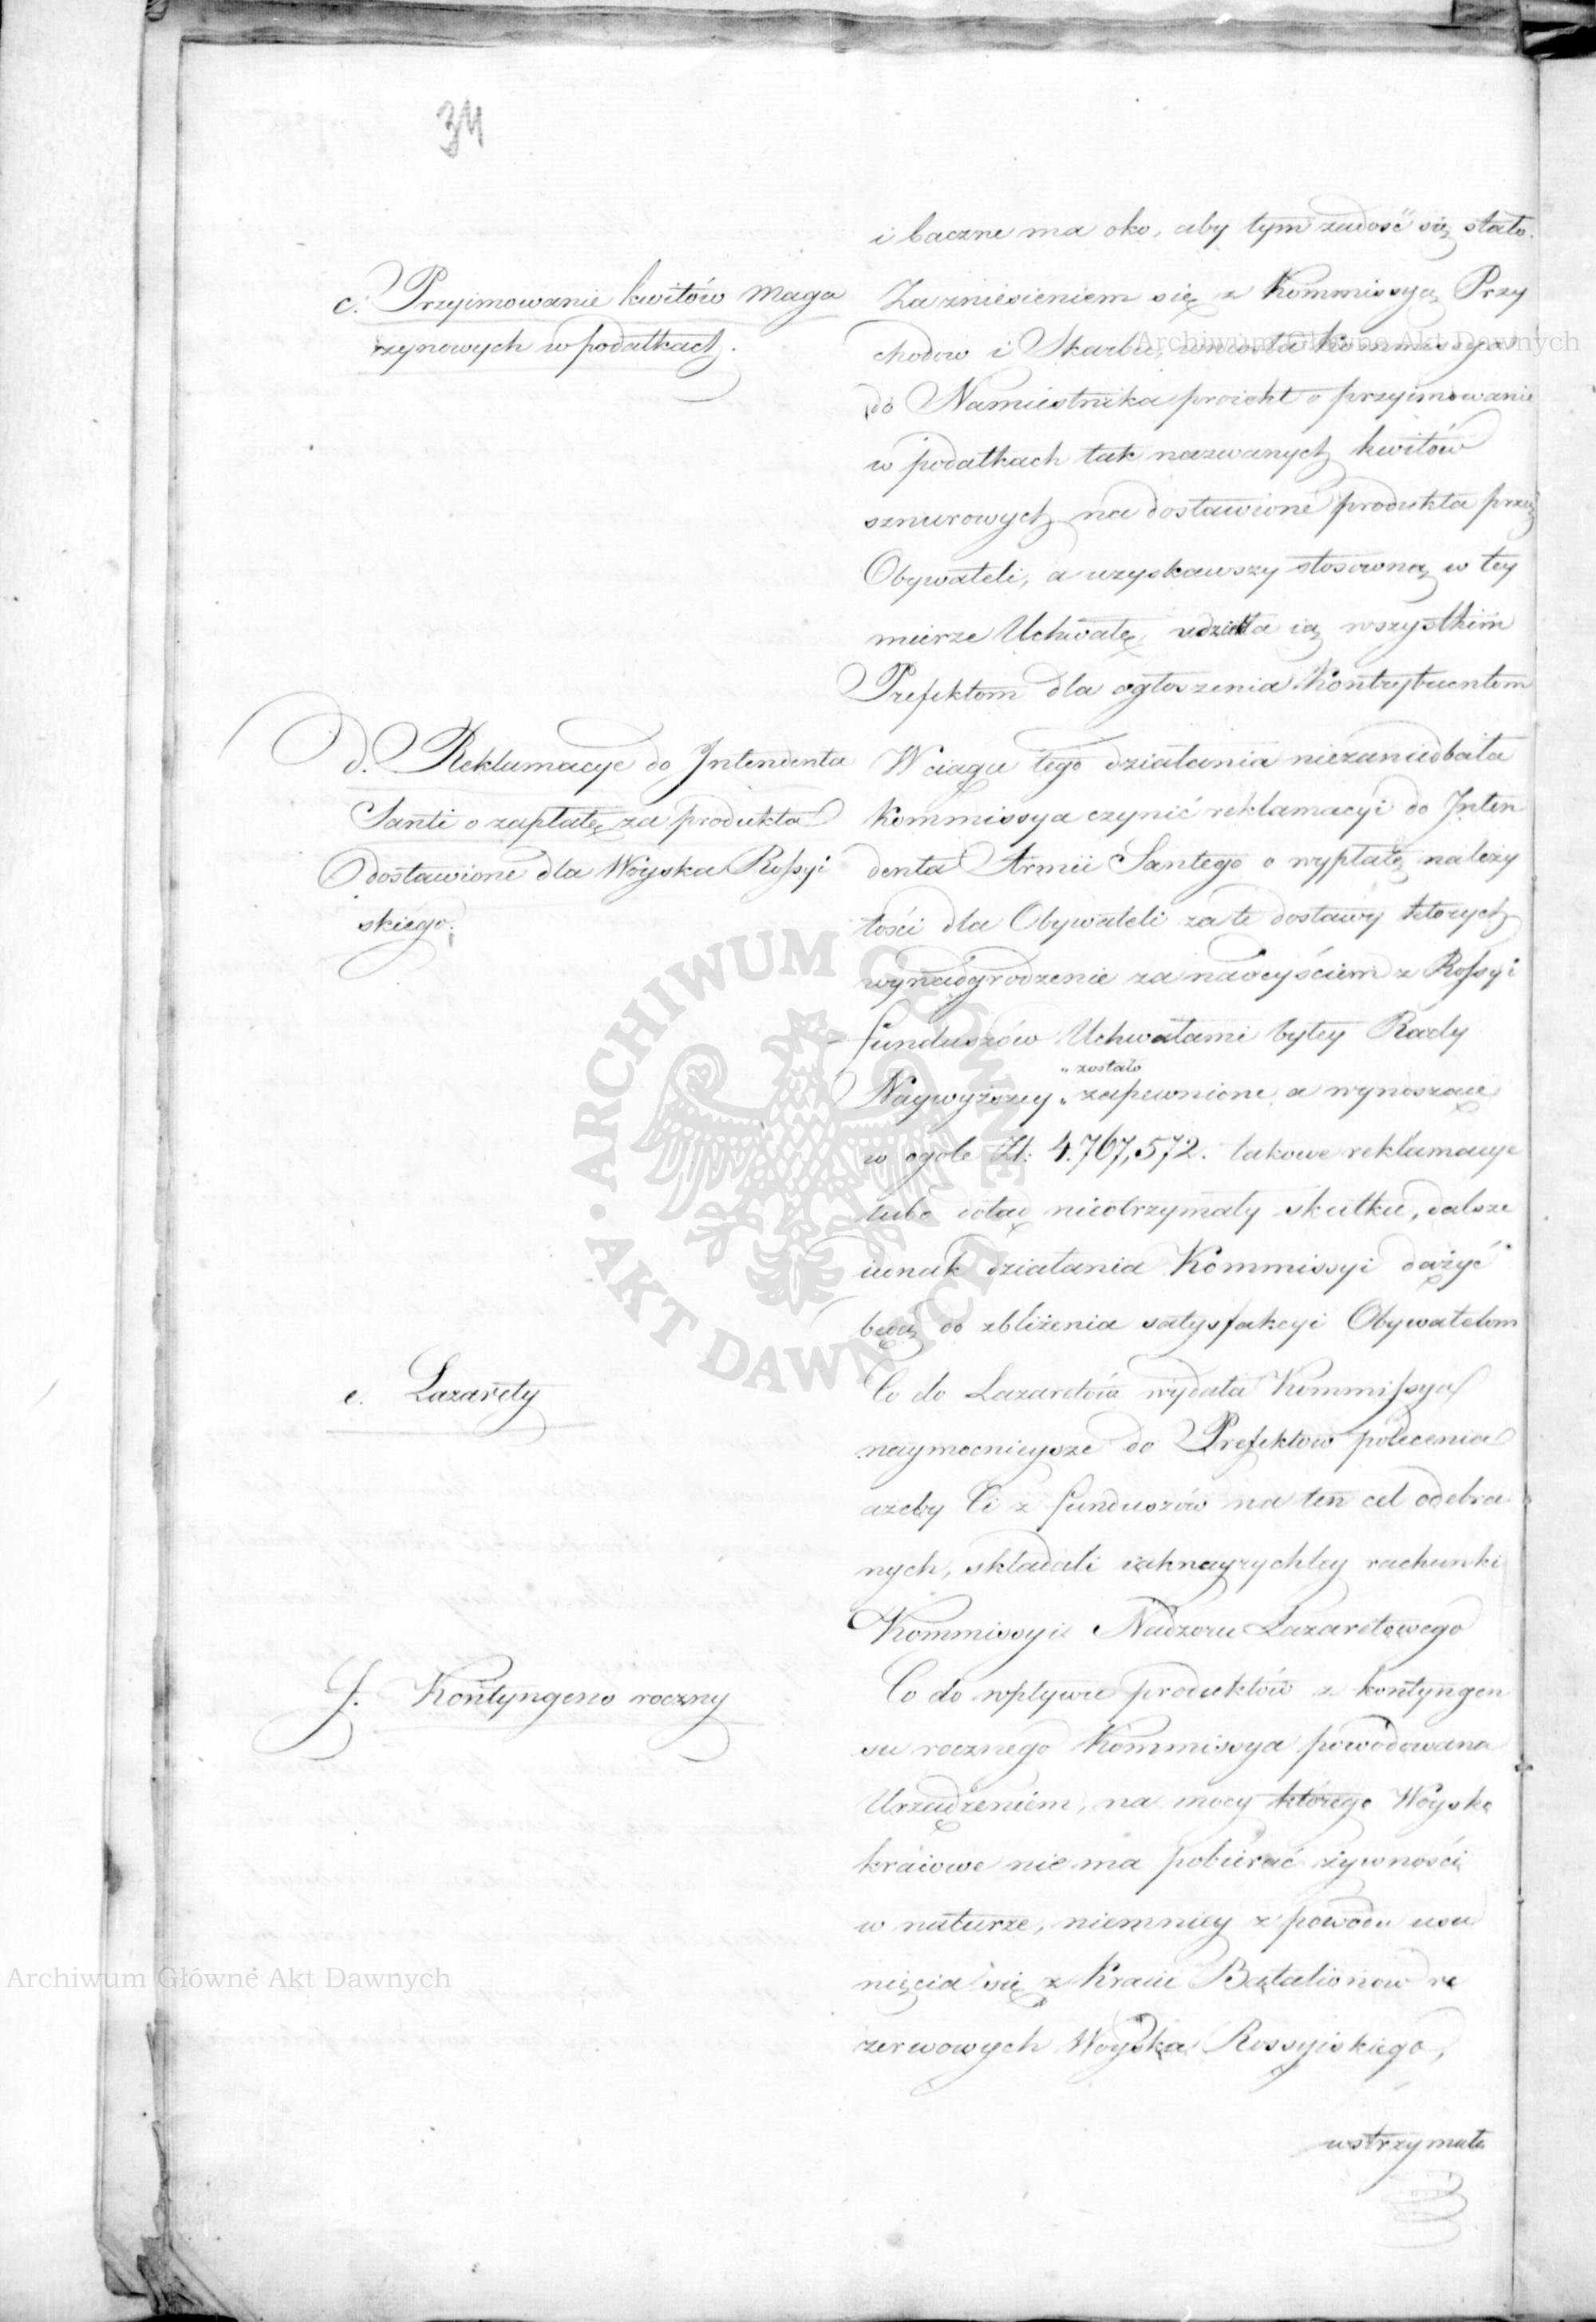 34
i baczne ma oko, aby tym zadość się stało.
c. Przyimowanie kwitów Maga
zynowych w podatkach.
Za zniesieniem się z Kommissyą Przy
chodow i Skarbu, wniosła Kommissya
do Namiestnika proiekt o przyimowanie
w podatkach tak nazwanych kwitów
sznurowych na dostawione produkta przez
Obywateli, a uzyskawszy stosowną w tey
mierze Uchwałę, udzieliła ią wszystkim
Prefektom dla ogłoszenia Kontrybuentom
d. Reklamacye do Intendenta
Santi o zapłatę za produkta
dostawione dla Woyska Rossyi
skiego.
W ciągu tego działania niezaniedbała
Kommissya czynić reklamacyi do Inten
denta Armii Santego o wypłatę należy
tości dla Obywateli za te dostawy których
wynadgrodzenie za nadeyściem z Rossyi
funduszów Uchwałami byłey Rady
„ zostało
Naywyższey „ zapewnione a wynoszące
w ogole Zł: 4.767,572. takowe reklamacye
lubo dotąd nieotrzymały skutku, dalsze
iednak działania Kommissyi dążyć
będą do zbliżenia satysfakcyi Obywatelom
e. Lazarety
Co do Lazaretów wydała Kommissya
naymocnieysze do Prefektow polecenia
ażeby Ci z funduszów na ten cel odebra
nych, składali iaknayrychley rachunki
Kommissyi Nadzoru Lazaretowego
f. Kontyngens roczny
Co do wpływu produktów z kontyngen
su rocznego Kommissya powodowana
Urządzeniem, na mocy którego Woysko
kraiowe nie ma pobierać żywności
w naturze, niemniey z powodu usu
nięcia się z Kraiu Batalionow re
zerwowych Woyska Rossyiskiego,
wstrzymała
Archiwum Główne Akt Dawnych
ARCHIWUM GŁÓWNE AKT DAWNYCH
Archiwum Główne Akt Dawnych